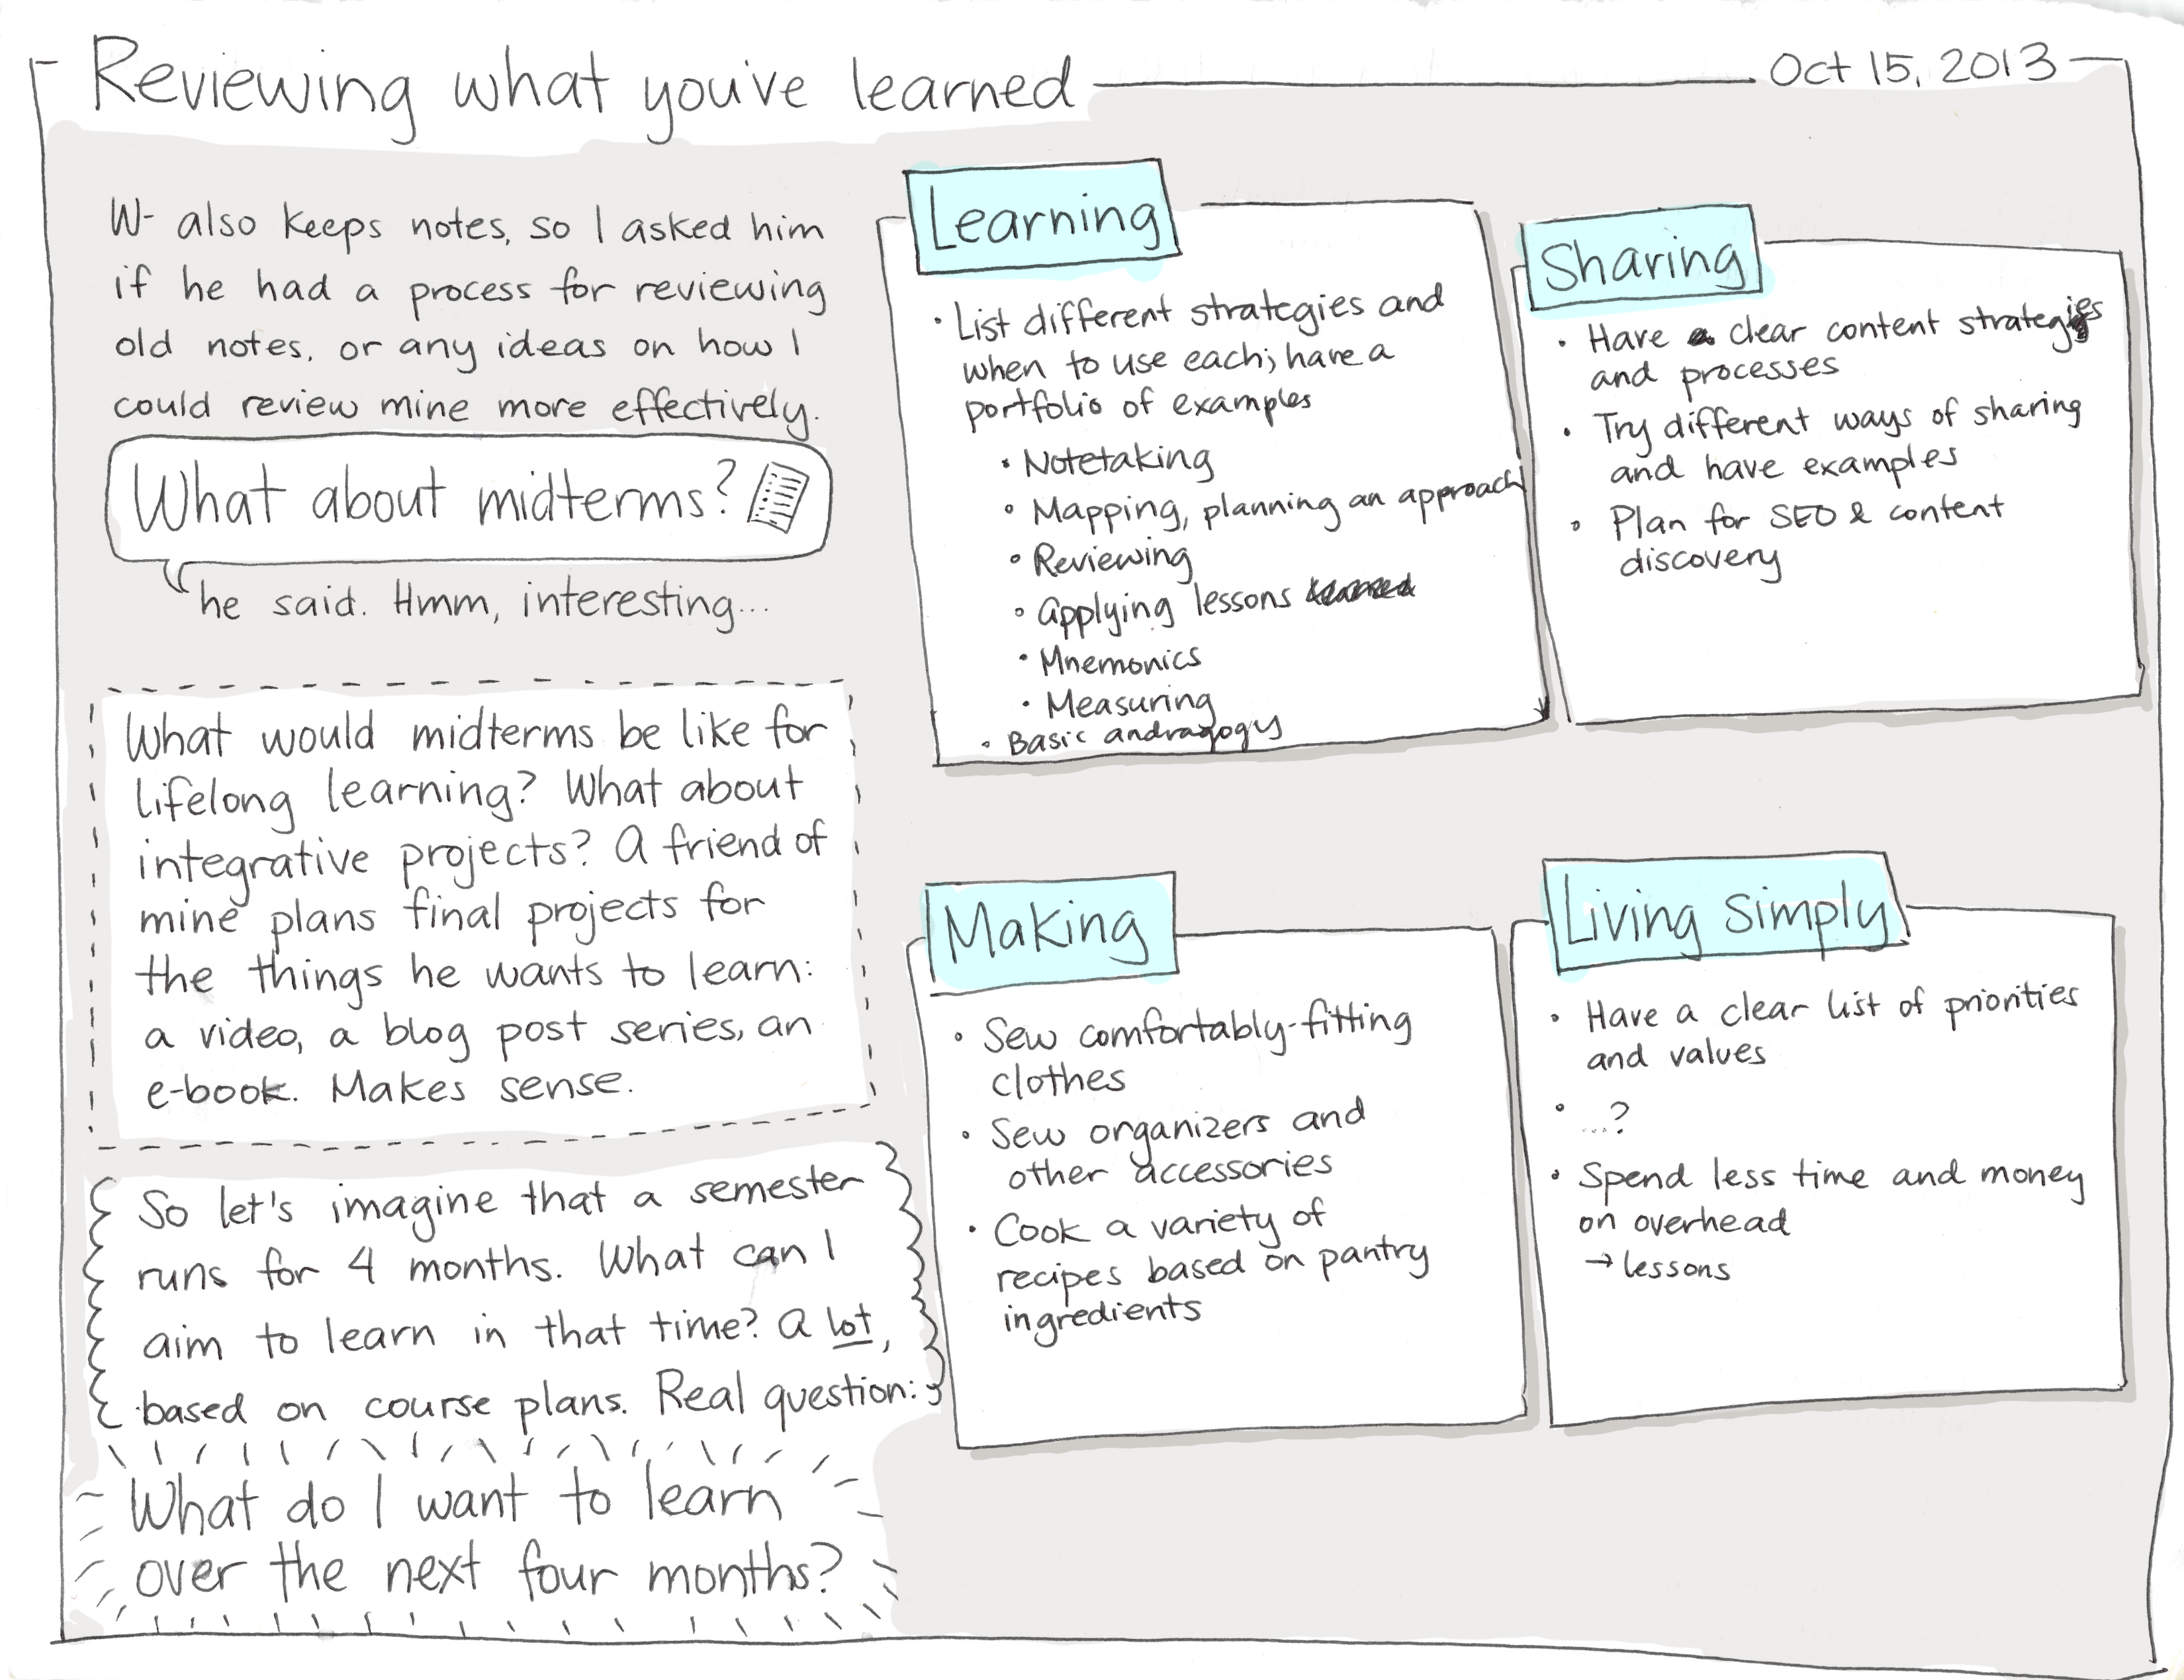 Reviewing what you've learned
Oct 15, 2013
W- also keeps notes, so I asked him
if he had a process for reviewing
old notes, or any ideas on how I
could review mine more effectively.
What about midterms?
he said. Hmm, interesting...
What would midterms be like for
lifelong learning? What about
integrative projects? A friend of
mine plans final projects for
the things he wants to learn:
a video, a blog post series, an
e-book. Makes sense.
So let's imagine that a semester
runs for 4 months. What can I
aim to learn in that time? A lot,
based on course plans. Real question:
What do I want to learn
over the next four months?
Learning
• List different strategies and
when to use each; have a
portfolio of examples
• Notetaking
• Mapping, planning an approach
• Reviewing
• Applying lessons
• Mnemonics
• Measuring
• Basic andragogy
Sharing
• Have clear content strategies
and processes
• Try different ways of sharing
and have examples
• Plan for SEO & content
discovery
Making
• Sew comfortably-fitting
clothes
• Sew organizers and
other accessories
• Cook a variety of
recipes based on pantry
ingredients
Living simply
• Have a clear list of priorities
and values
• ...?
• Spend less time and money
on overhead
→ lessons